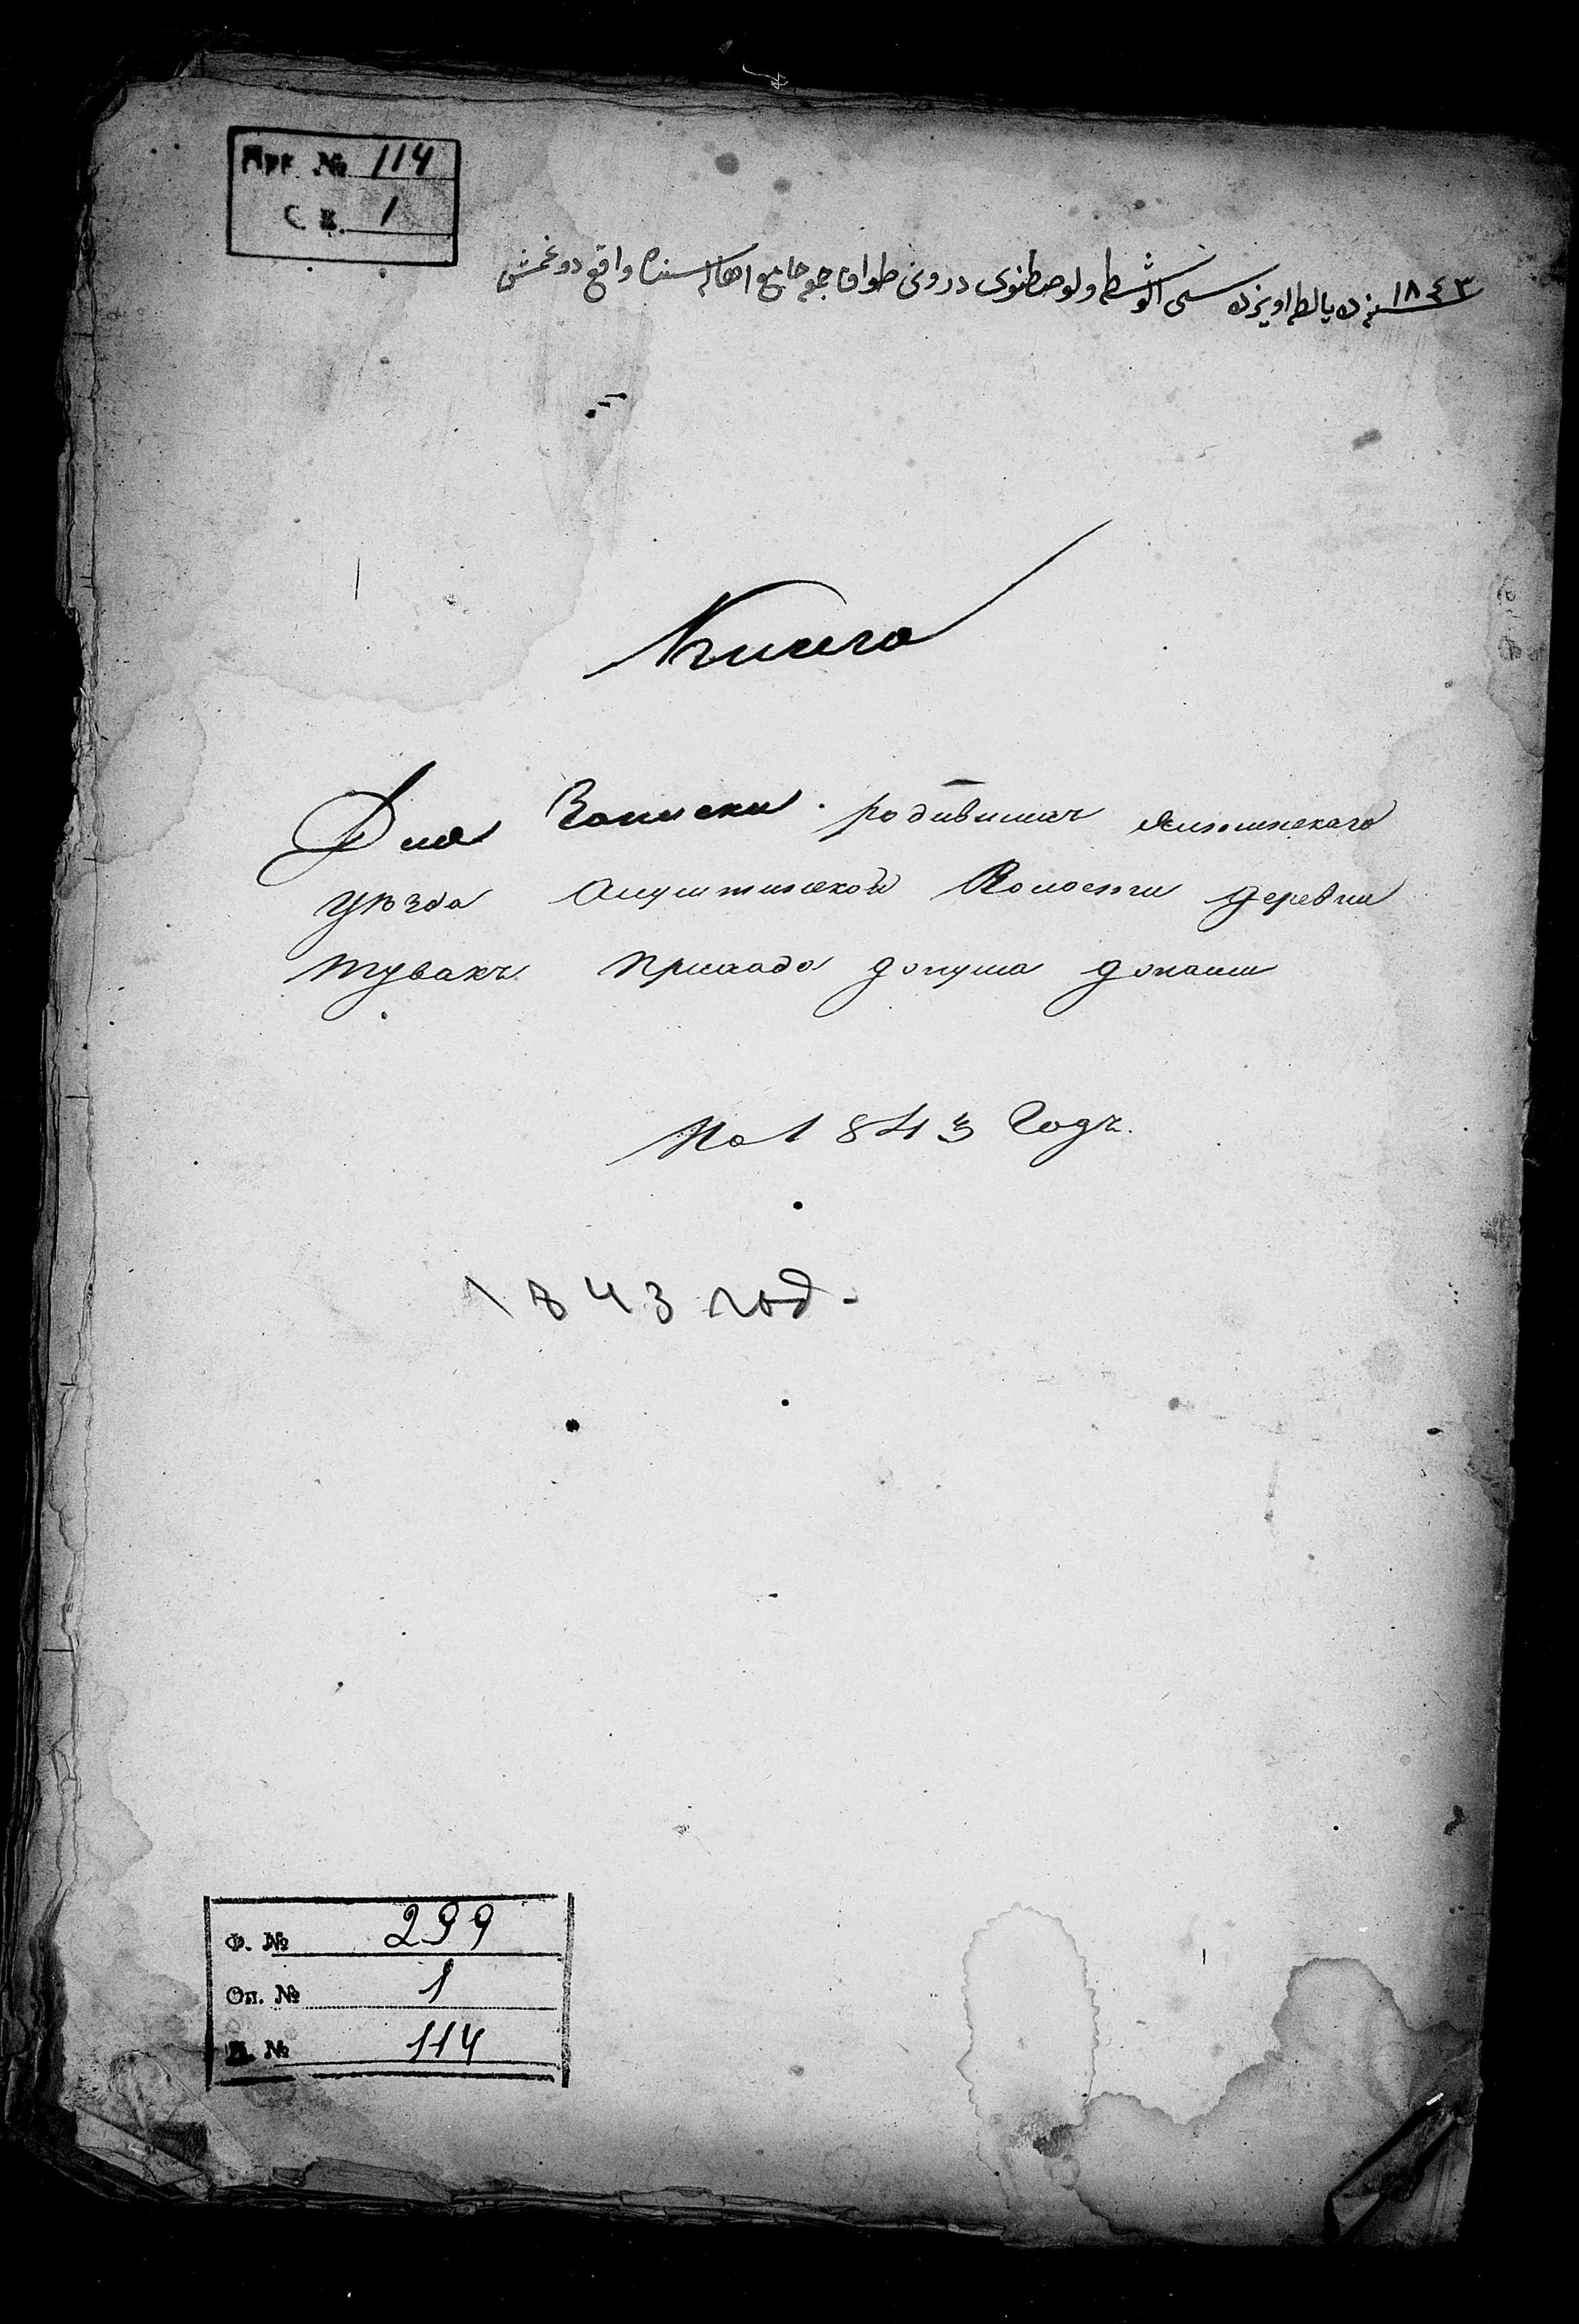 Арх. № 114
С. В. 1
١٨٤٣ سنه ده يالطه اويزده سی الوشطه ولوصطنوی درونی طواق جامع واقع دوغمش
Книга
Для Записки родившихъ Ялтинскаго
уѣзда Алуштинской Волости деревни
Тувакъ прихода
На 1843 Годъ.
1843 год.
Ф. № 299
Оп. № 1
Д. № 114